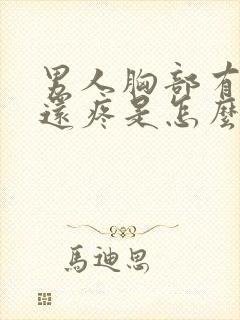 男人胸部有
還疼是怎麼
馬迪思